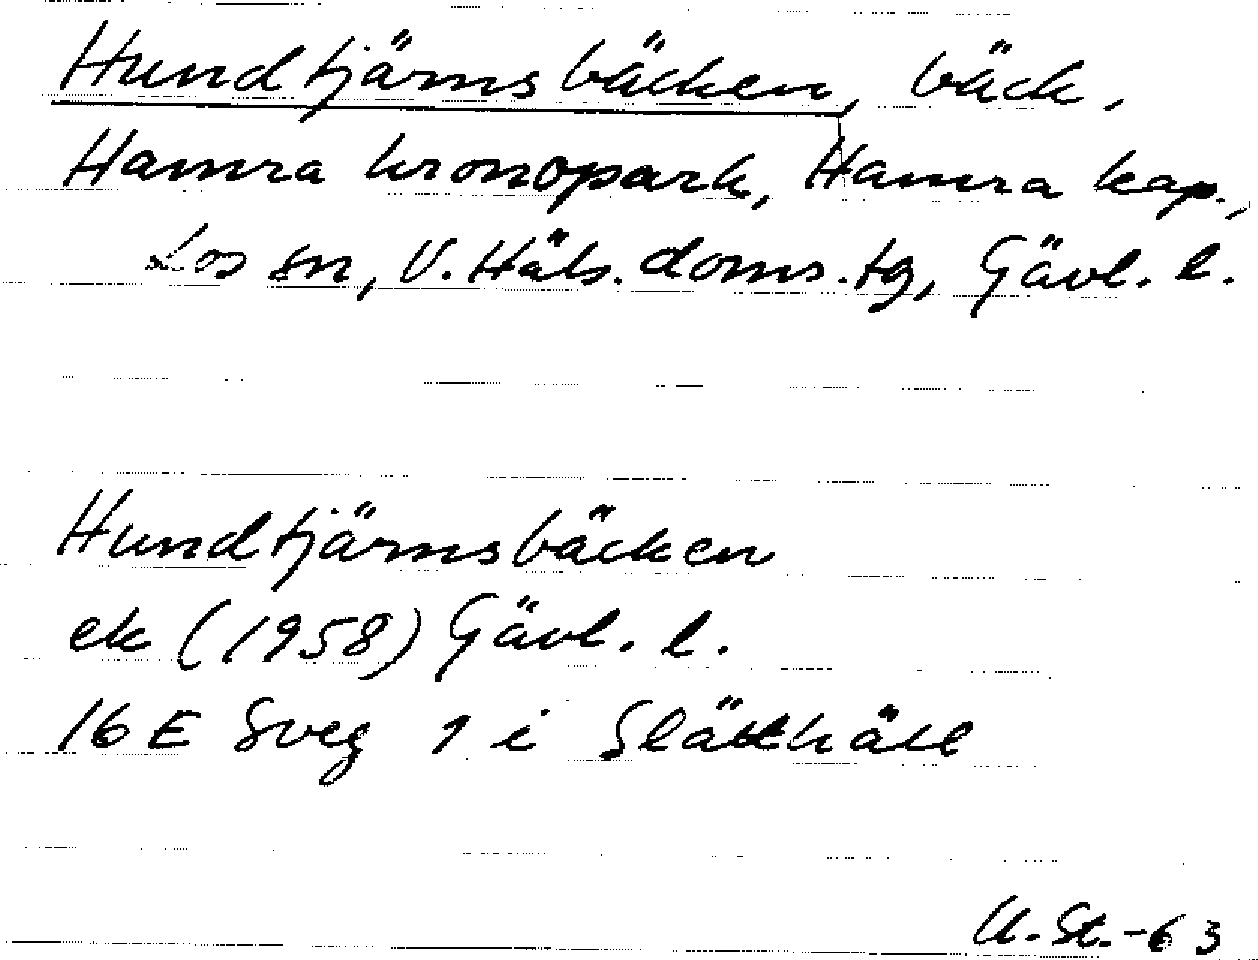 Hundtjärnsbäcken, bäck,
Hamra kronopark, Hamra kap.,
Los sn, V. Häls. doms. tg, Gävl. l.
Hundtjärnsbäcken
ek (1958) Gävl. l.
16 E Sveg 1 i Slätthäll
U. St. -63